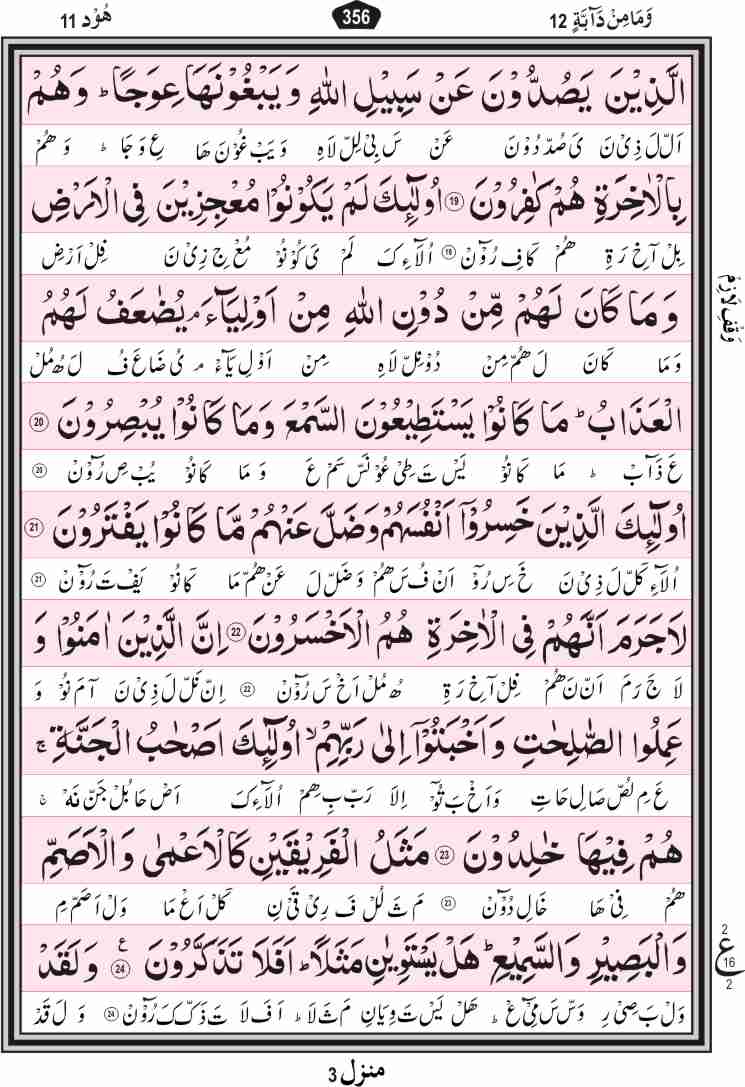 وَمَا مِنْ دَآبَّةٍ 12
356
هُوْد 11
الَّذِيْنَ يَصُدُّوْنَ عَنْ سَبِيْلِ اللّٰهِ وَيَبْغُوْنَهَا عِوَجًا ؕ وَهُمْ
اَلْ لَ ذِىْ نَ يَ صُدّ دُوْنَ عَنْ سَ بِىْ لِلّ لَاهِ وَ يَبْ غُوْنَ هَا عِ وَ جَا ؕ وَ هُمْ
بِالْاٰخِرَةِ هُمْ كٰفِرُوْنَ 19 اُولٰٓئِكَ لَمْ يَكُوْنُوْا مُعْجِزِيْنَ فِى الْاَرْضِ
بِلْ آخِ رَ ةِ هُمْ كَافِ رُوْٓنْ 19 اُلَآءِ كَ لَمْ يَ كُوْنُوْ مُعْ جِ زِىْ نَ فِلْ اَرْضِ
وَمَا كَانَ لَهُمْ مِّنْ دُوْنِ اللّٰهِ مِنْ اَوْلِيَآءَ ۘ يُضٰعَفُ لَهُمُ
وَ مَا كَانَ لَ هُمّ مِنْ دُوْنِلّ لَاهِ مِنْ اَوْ لِ يَآءْ ۘ يُ ضَاعَ فُ لَ هُ مُلْ
الْعَذَابُ ؕ مَا كَانُوْا يَسْتَطِيْعُوْنَ السَّمْعَ وَمَا كَانُوْا يُبْصِرُوْنَ 20
عَ ذَآبْ ؕ مَا كَانُوْ يَسْ تَ طِىْ عُوْنَسّ سَمْ عَ وَ مَا كَانُوْ يُبْ صِ رُوْٓنْ 20
اُولٰٓئِكَ الَّذِيْنَ خَسِرُوْٓا اَنْفُسَهُمْ وَضَلَّ عَنْهُمْ مَّا كَانُوْا يَفْتَرُوْنَ 21
اُلَآءِ كَلّ لَ ذِىْ نَ خَ سِ رُوْٓ اَنْ فُ سَ هُمْ وَ ضَلّ لَ عَنْ هُمّ مَا كَانُوْ يَفْ تَ رُوْٓنْ 21
لَاجَرَمَ اَنَّهُمْ فِى الْاٰخِرَةِ هُمُ الْاَخْسَرُوْنَ 22 اِنَّ الَّذِيْنَ اٰمَنُوْا وَ
لَا جَ رَ مَ اَنّ نَ هُمْ فِلْ آخِ رَ ةِ هُ مُلْ اَخْ سَ رُوْٓنْ 22 اِنّ نَلّ لَ ذِىْ نَ آ مَ نُوْ وَ
عَمِلُوا الصّٰلِحٰتِ وَاَخْبَتُوْٓا اِلٰى رَبِّهِمْ ۙ اُولٰٓئِكَ اَصْحٰبُ الْجَنَّةِ ۚ
عَ مِ لُصّ صَالِ حَاتِ وَ اَخْ بَ تُوْٓ اِلَا رَبّ بِ هِمْ اُلَآءِ كَ اَصْ حَا بُلْ جَنّ نَهْ ۚ
هُمْ فِيْهَا خٰلِدُوْنَ 23 مَثَلُ الْفَرِيْقَيْنِ كَالْاَعْمٰى وَالْاَصَمِّ
هُمْ فِىْ هَا خَالِ دُوْٓنْ 23 مَ ثَ لُلْ فَ رِىْ قَىْ نِ كَلْ اَعْ مَا وَلْ اَ صَمّ مِ
وَالْبَصِيْرِ وَالسَّمِيْعِ ؕ هَلْ يَسْتَوِيٰنِ مَثَلًا ؕ اَفَلَا تَذَكَّرُوْنَ 24 ع وَلَقَدْ
وَلْ بَ صِىْ رِ وَسّ سَ مِىْٓ عْ ؕ هَلْ يَسْ تَ وِيَانِ مَ ثَ لَا ؕ اَ فَ لَا تَ ذَكّ كَ رُوْٓنْ 24 وَ لَ قَدْ
وَقْفِ لَازِمْ
2
ع 16
2
منزل 3